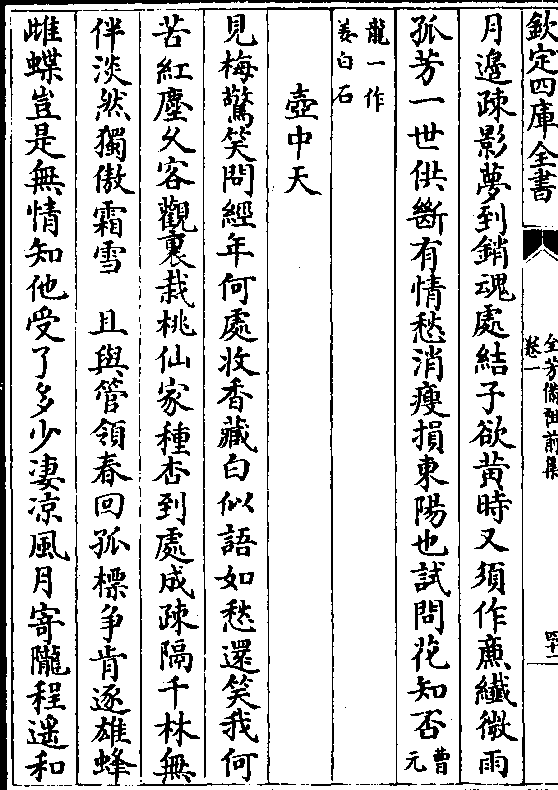 欽定四庫全書
全芳備祖前集
卷一
四十二
月邊疎影夢到銷魂處結子欲黃時又須作廉纖微雨
孤芳一世供斷有情愁消瘦損東陽也試問花知否曹元
龍一作
姜白石
壺中天
見梅驚笑問經年何處收香藏白似語如愁還笑我何
苦紅塵久客觀裏栽桃仙家種杏到處成疎隔千林無
伴淡然獨傲霜雪　且與管領春回孤標争肯逐雄蜂
雌蝶豈是無情知他受了多少凄凉風月寄隴程遥和